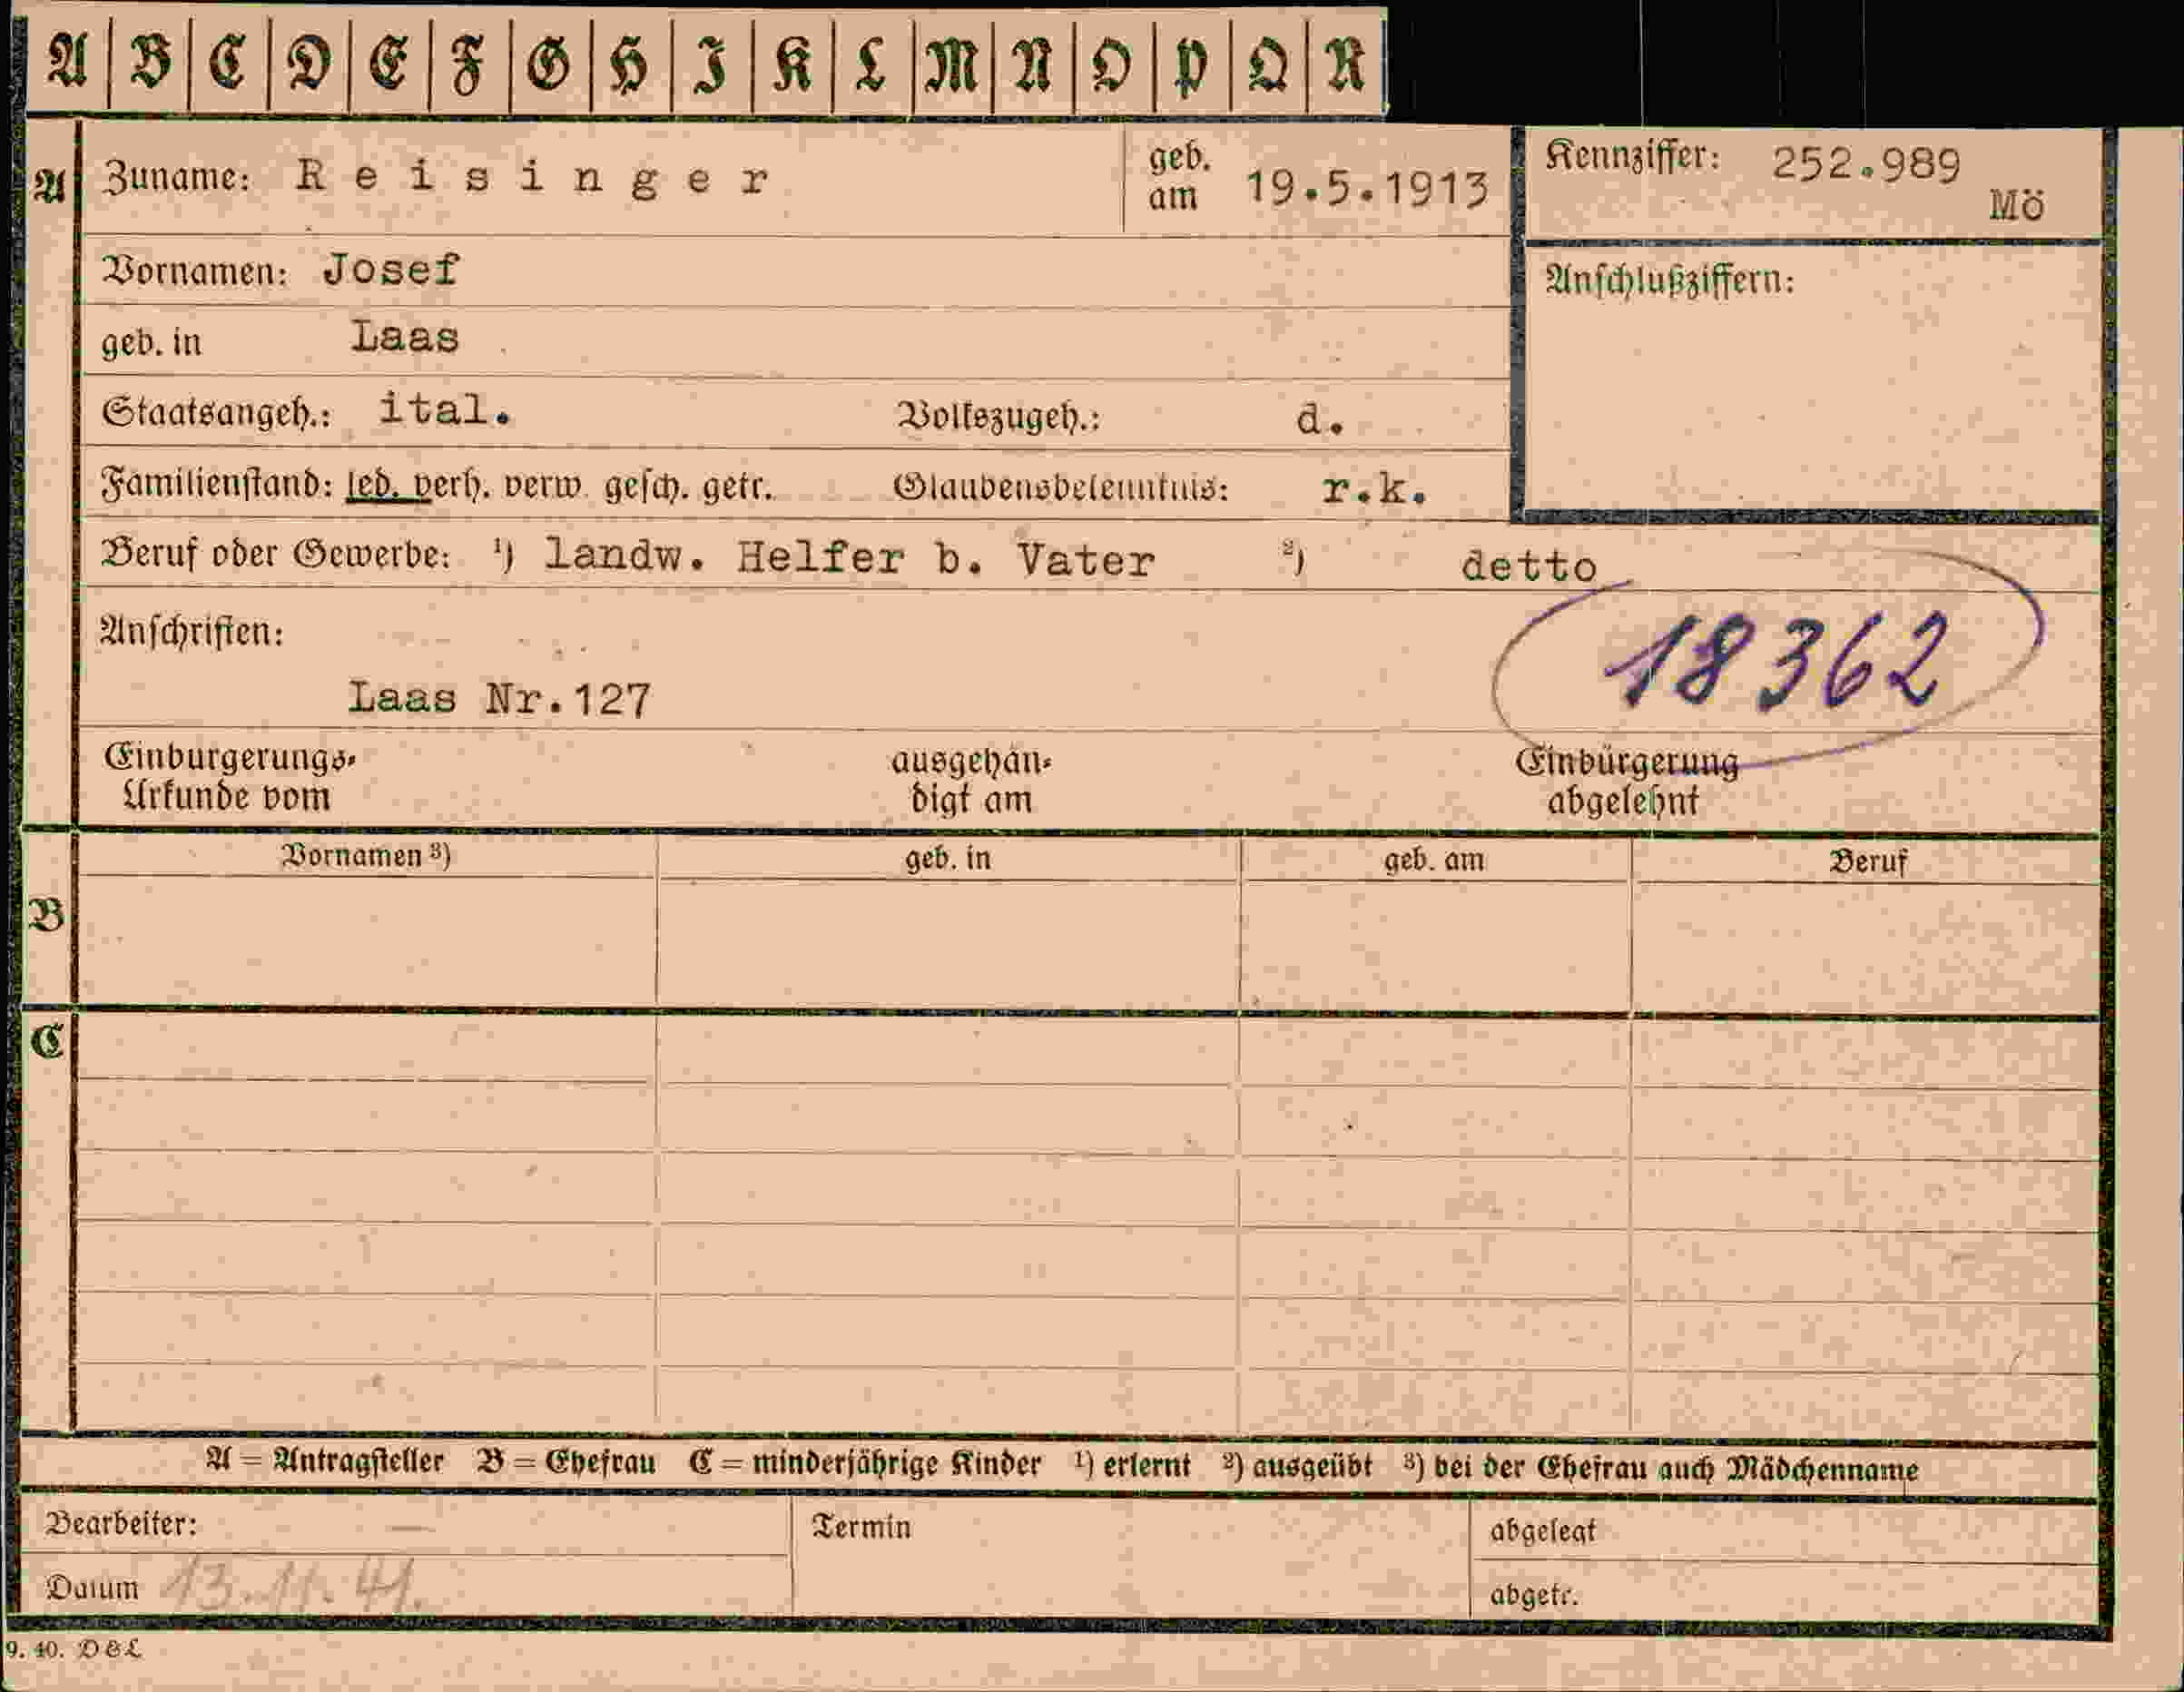 A B C D E F G H I K L M N O P Q R
A Zuname: Reisinger geb. am 19.5.1913 Kennziffer: 252.989
Mö
Vornamen: Josef Anschlußziffern:
geb. in Laas
Staatsangeh.: ital. Volkszugeh.: d.
Familienstand: led. verh. verw. gesch. getr. Glaubensbekenntnis: r.k.
Beruf oder Gewerbe: ¹) landw. Helfer b. Vater ²) detto
Anschriften: 18362
Laas Nr.127
Einbürgerungs- ausgehän- Einbürgerung
Urkunde vom digt am abgelehnt
Vornamen ³) geb. in geb. am Beruf
B
C
A = Antragsteller B = Ehefrau C = minderjährige Kinder ¹) erlernt ²) ausgeübt ³) bei der Ehefrau auch Mädchenname
Bearbeiter: Termin abgelegt
Datum 13.11.41. abgetr.
9. 40. D&L